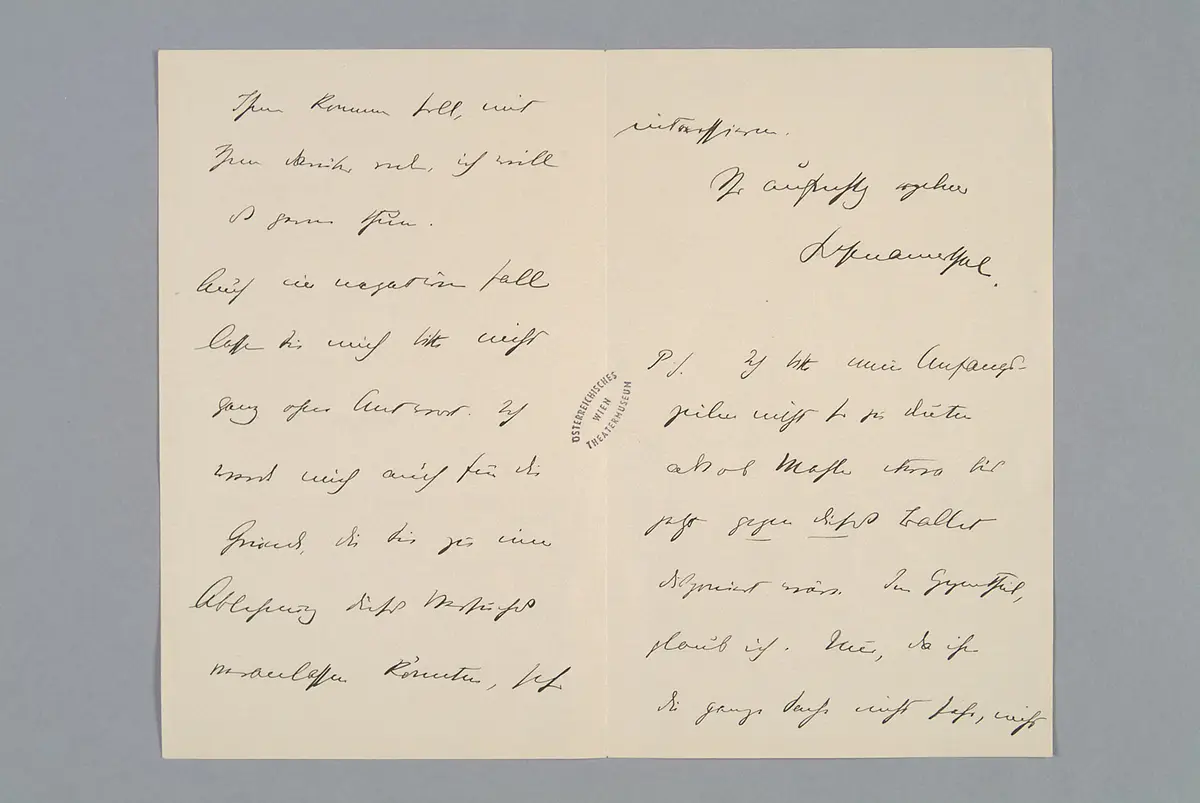 Ihnen kommen soll, mit
Ihnen darüber red, ich will
es gerne thun.
Auch im negativen Fall
lassen Sie mich bitte nicht
ganz ohne Antwort. Ich
werde mich auch für die
Gründe, die Sie zu einer
Ablehnung dieses Versuches
veranlassen könnten, sehr
interessieren.
Ihr aufrichtig ergebener
Hofmannsthal.
P.S. Ich bitte meine Anfangs-
zeilen nicht so zu deuten
als ob Mahler etwa bis
jetzt gegen dieses Ballet
disponiert wäre. Im Gegentheil,
glaub ich. Nur, da ihn
die ganze Sache nicht sehr, nicht
ÖSTERREICHISCHES
WIEN
THEATERMUSEUM